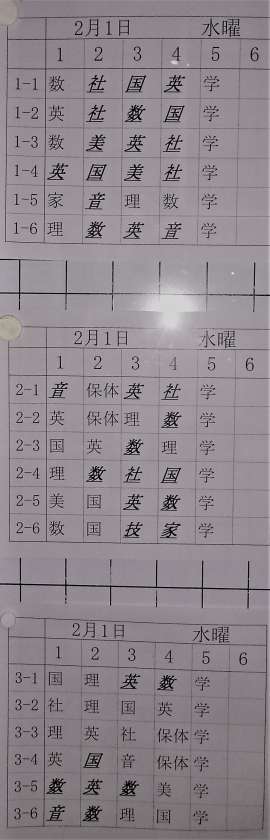 2月1日 水曜
1 2 3 4 5 6
1-1 数 社 国 英 学
1-2 英 社 数 国 学
1-3 数 美 英 社 学
1-4 英 国 美 社 学
1-5 家 音 理 数 学
1-6 理 数 英 音 学
2月1日 水曜
1 2 3 4 5 6
2-1 音 保体 英 社 学
2-2 英 保体 理 数 学
2-3 国 英 数 理 学
2-4 理 数 社 国 学
2-5 美 国 英 数 学
2-6 数 国 技 家 学
2月1日 水曜
1 2 3 4 5 6
3-1 国 理 英 数 学
3-2 社 理 国 英 学
3-3 理 英 社 保体 学
3-4 英 国 音 保体 学
3-5 数 英 数 美 学
3-6 音 数 理 国 学